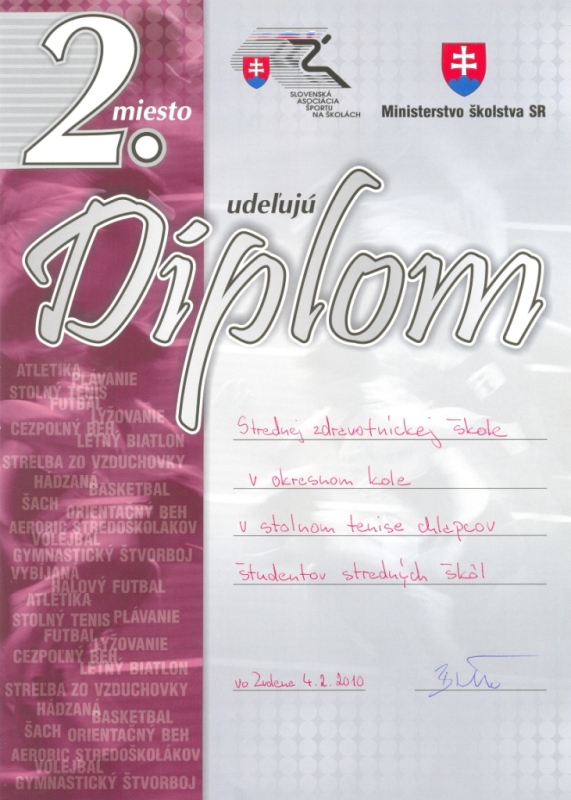 2. miesto
SLOVENSKÁ
ASOCIÁCIA
ŠPORTU
NA ŠKOLÁCH
Ministerstvo školstva SR
udeľujú
Diplom
Strednej zdravotníckej škole
v okresnom kole
v stolnom tenise chlapcov
študentov stredných škôl
vo Zvolene 4.2.2010
ATLETIKA
PLÁVANIE
STOLNÝ TENIS
FUTBAL
LYŽOVANIE
CEZPOĽNÝ BEH
LETNÝ BIATLON
STREĽBA ZO VZDUCHOVKY
HÁDZANÁ
BASKETBAL
ŠACH
ORIENTAČNÝ BEH
AEROBIC STREDOŠKOLÁKOV
VOLEJBAL
GYMNASTICKÝ ŠTVORBOJ
VYBÍJANÁ
HALOVÝ FUTBAL
ATLETIKA
STOLNÝ TENIS
PLÁVANIE
FUTBAL
LYŽOVANIE
CEZPOĽNÝ BEH
LETNÝ BIATLON
STREĽBA ZO VZDUCHOVKY
HÁDZANÁ
BASKETBAL
ŠACH
ORIENTAČNÝ BEH
AEROBIC STREDOŠKOLÁKOV
VOLEJBAL
GYMNASTICKÝ ŠTVORBOJ